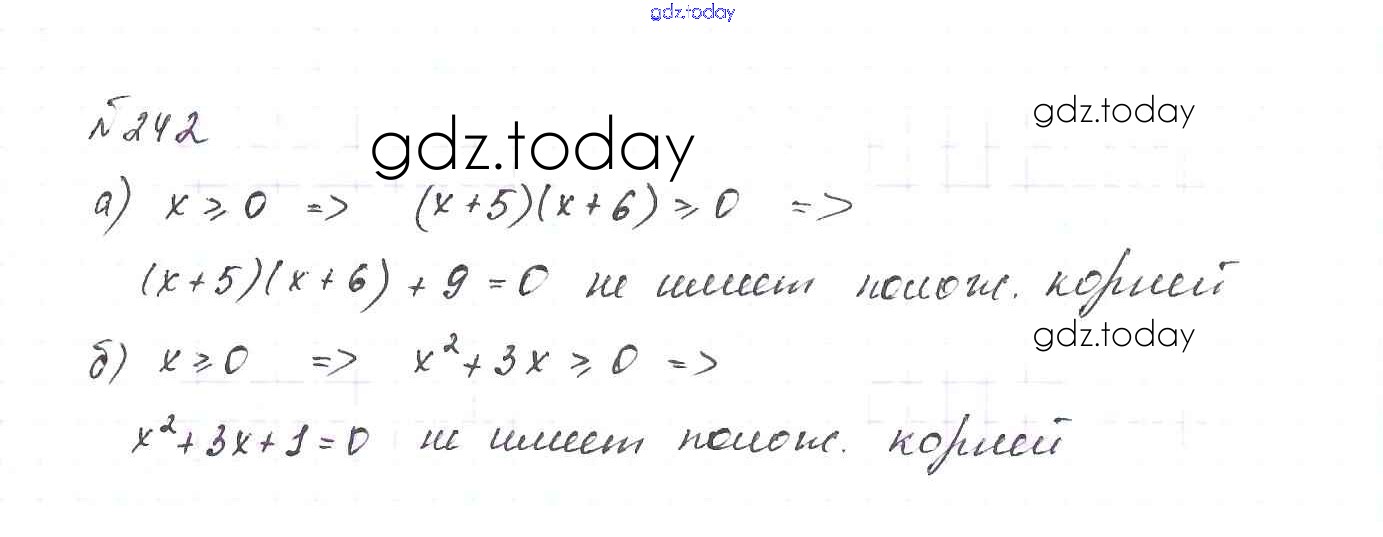 gdz.today
№242
gdz.today
gdz.today
а) x ≥ 0 => (x+5)(x+6) ≥ 0 =>
(x+5)(x+6) + 9 = 0 не имеет полож. корней
gdz.today
б) x ≥ 0 => x² + 3x ≥ 0 =>
x² + 3x + 1 = 0 не имеет полож. корней